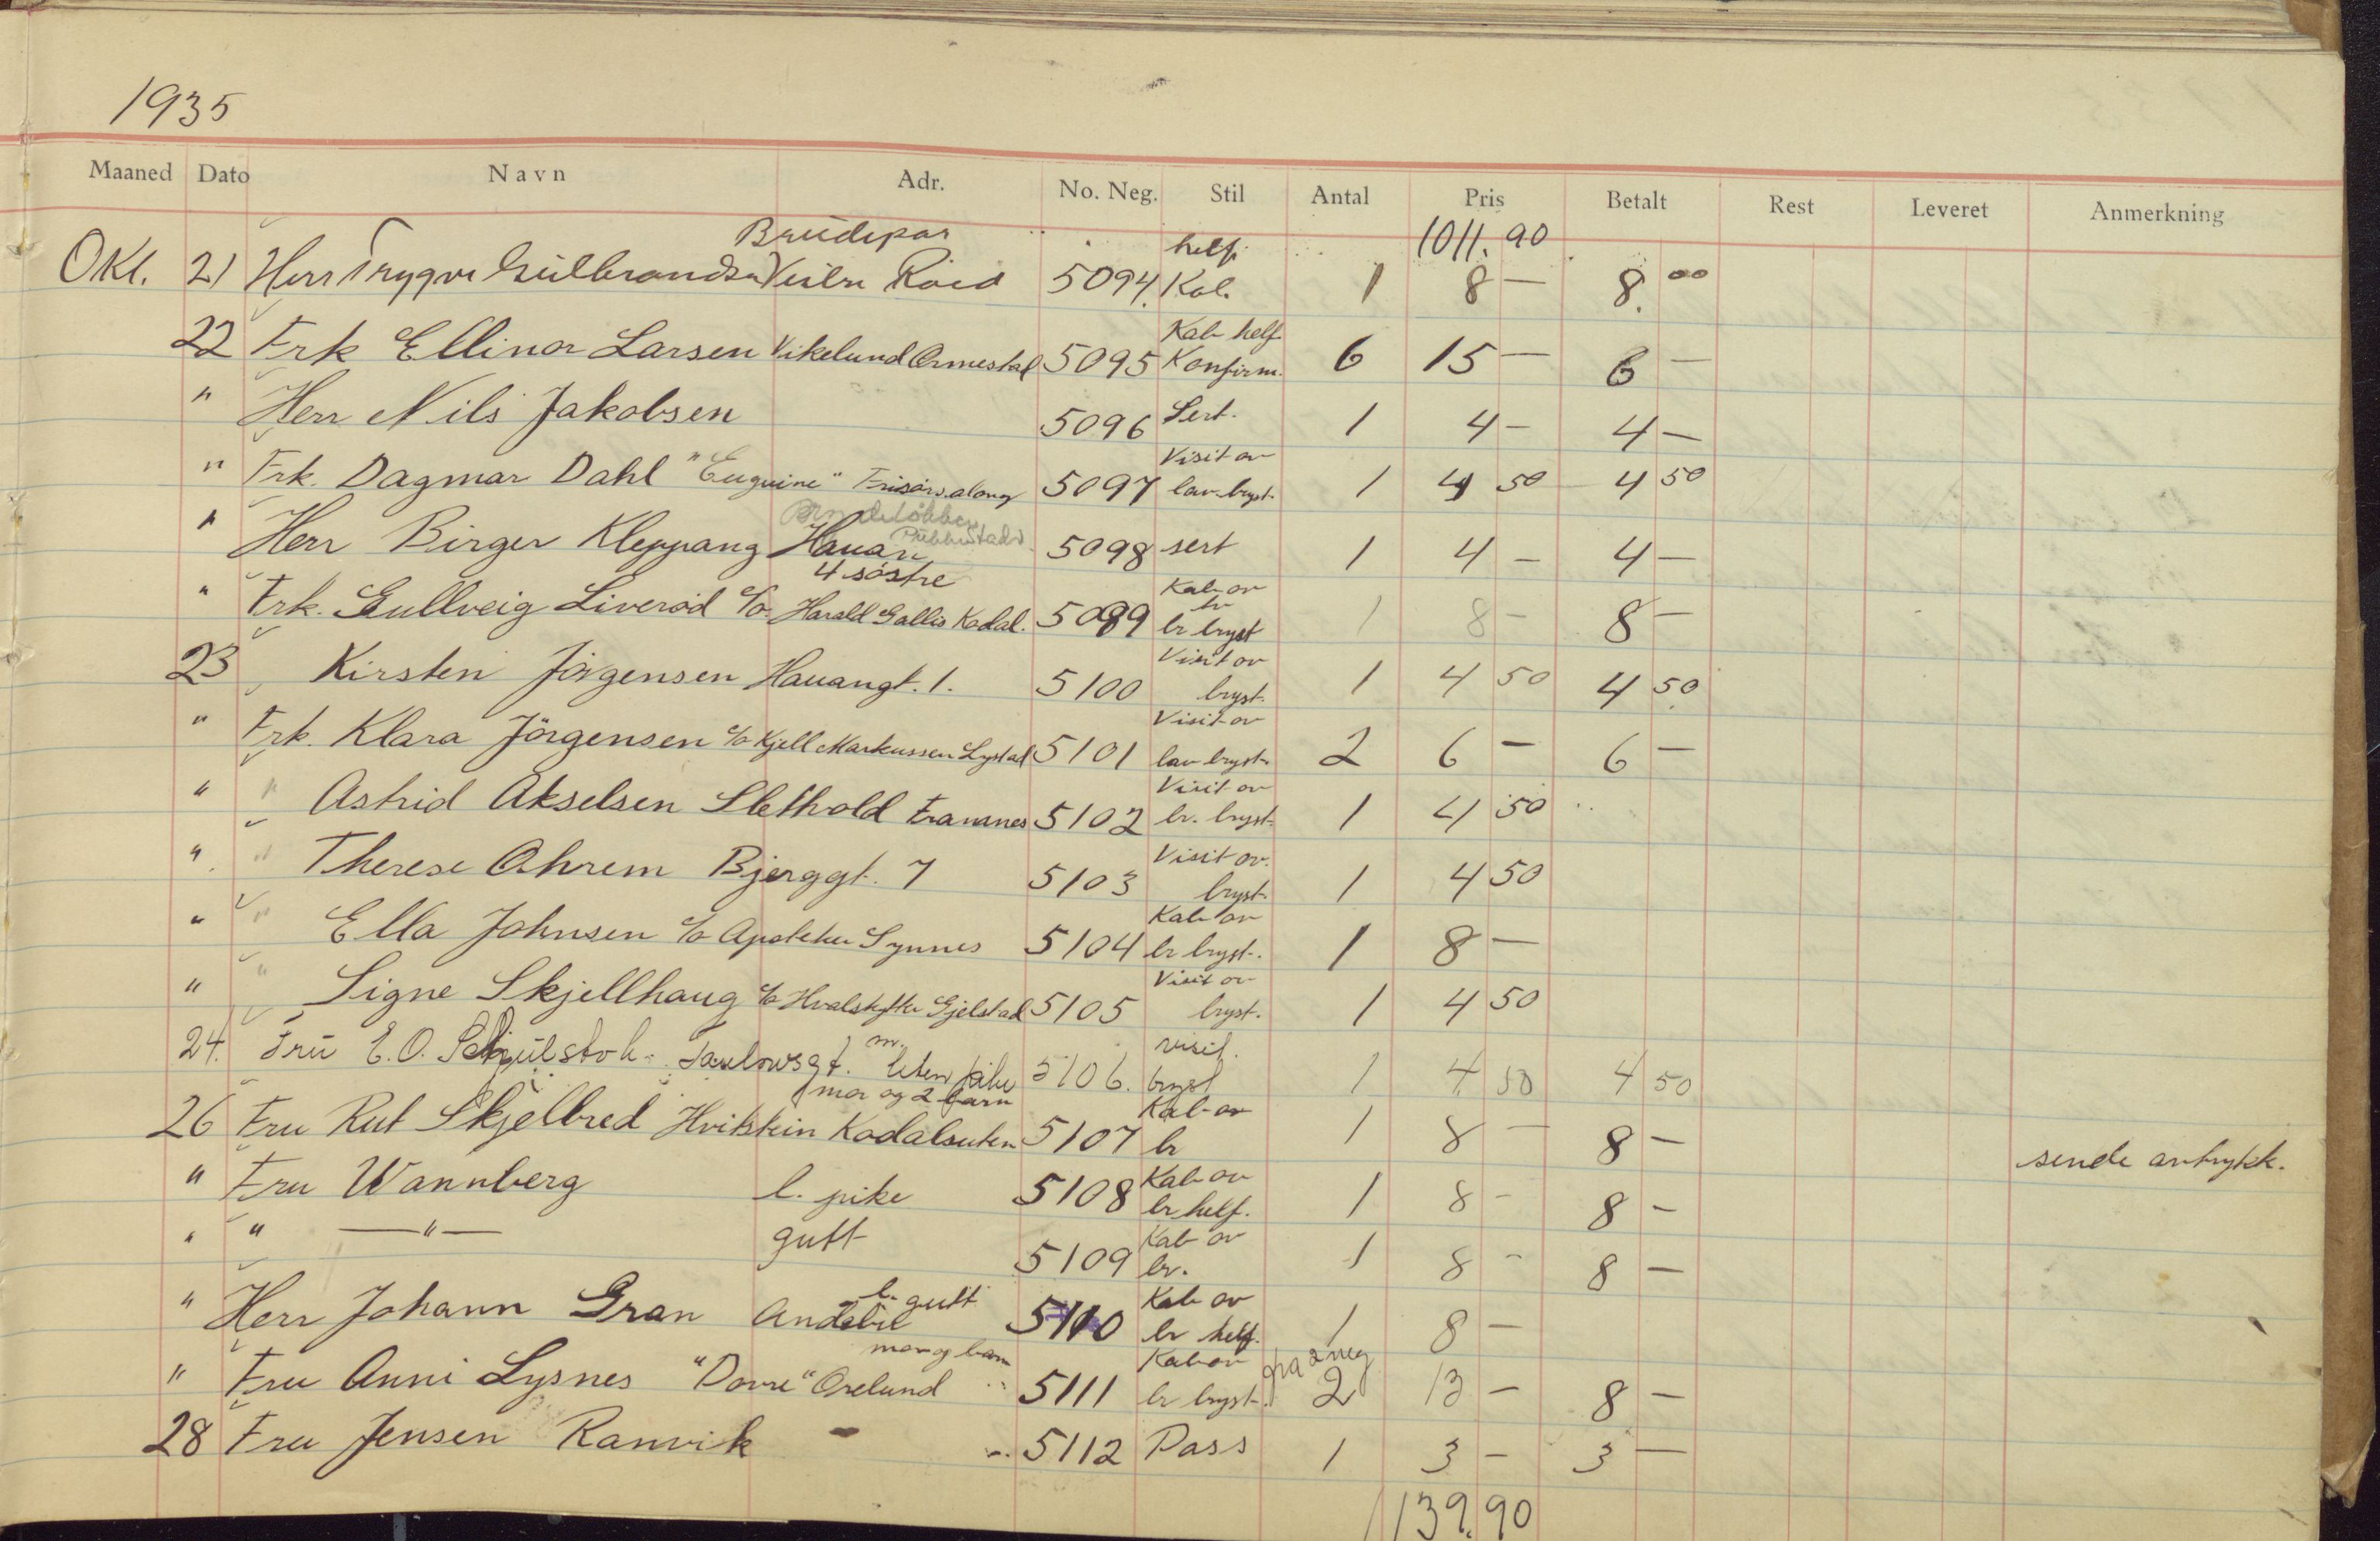 1935
Maaned Dato Navn Adr. No. Neg. Stil Antal Pris Betalt Rest Leveret Anmerkning
Brudepar helf. 1011.90
Okt. 21 Herr Trygve Gulbrandsen Roed 5094. Kab. 1 8 — 8.00
Kab helf
22 Frk Ellinor Larsen Vikelund Ormestad 5095 Konfirm. 6 15 — 6 —
" Herr Nils Jakobsen 5096 Sert. 1 4 — 4 —
Visit ov
" Frk. Dagmar Dahl "Euguine" Frisörsalong 5097 lav. bryst. 1 4 50 4 50
" Herr Birger Kleppang Hauan 5098 sert 1 4 — 4 —
4 söstre Kab ov br
" Frk. Gullveig Liveröd c/o Harald Gallis Kodal. 5099 br bryst 1 8 — 8 —
Visit ov
23 " Kirsten Jörgensen Hauangt. 1. 5100 bryst. 1 4 50 4 50
Visit ov
" Frk. Klara Jörgensen c/o Kjell Markussen Lystad 5101 lav bryst. 2 6 — 6 —
Visit ov
" " Astrid Akselsen Slethold Framnes 5102 br. bryst. 1 4 50
Visit ov.
" " Therese Ahrem Bjerggt. 7 5103 bryst. 1 4 50
Kab ov
" " Ella Johnsen c/o Apoteker Synnes 5104 br bryst. 1 8 —
Visit ov
" " Signe Skjellhaug c/o Hvalskytter Gjelstad 5105 bryst. 1 4 50
m. visit.
24. Fru E.O. liten pike 5106. bryst 1 4 50 4 50
mor og 2 barn Kab ov
26 Fru Rut Skjelbred Hvitstein Kodalsuten 5107 br 1 8 — 8 — sende avtrykk.
Kab ov
" Fru Wannberg l. pike 5108 br helf. 1 8 - 8 —
Kab ov
" " — " — gutt 5109 br. 1 8 - 8 —
l. gutt Kab ov
" Herr Johann Gran Andebu 5110 br helf. 1 8 —
mor og barn Kab ov fra 2 neg
" Fru Anni Lysnes "Dovre" Orelund 5111 br bryst. 2 13 — 8 —
28 Fru Jensen Ranvik - 5112 Pass 1 3 — 3 —
1139.90